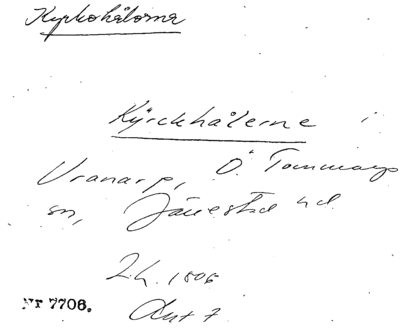 Kyrkohålorna
Kyrckhålerne i
Vranarp, Ö. Tommarps
sn, Järrestad hd
Lh. 1806
Nr 7706. Akt 7